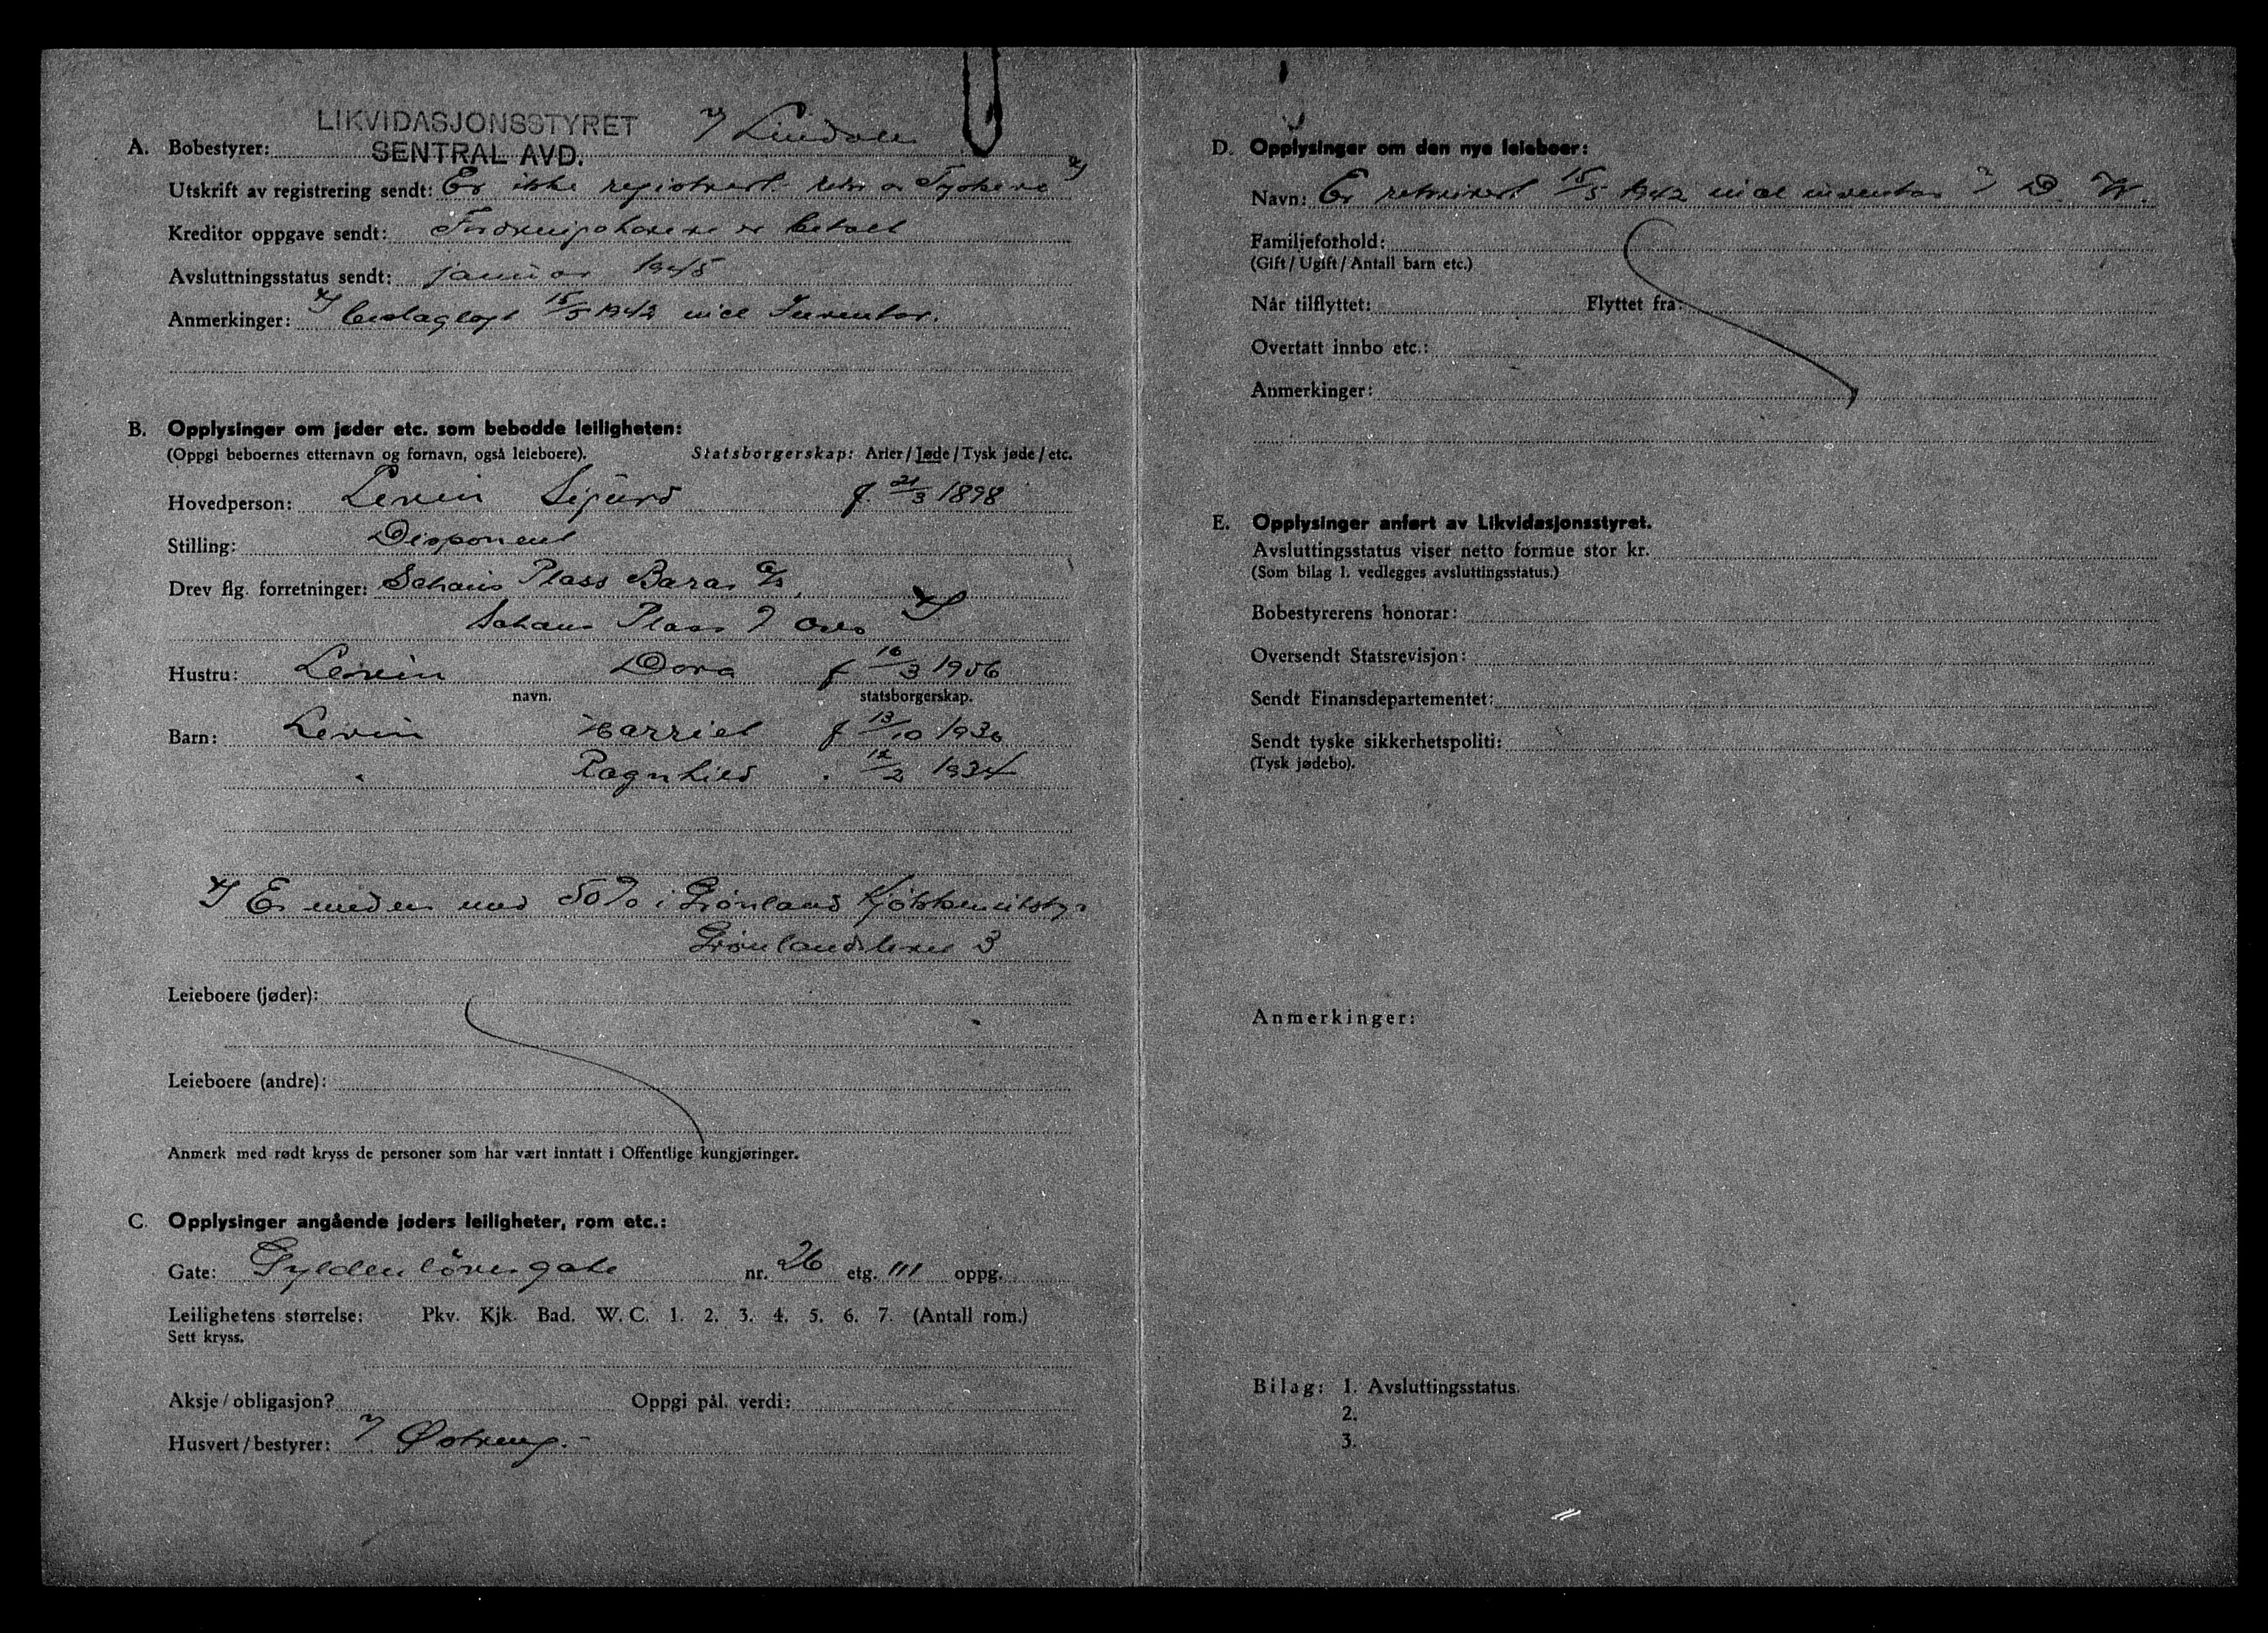 LIKVIDASJONSSTYRET
A. Bobestyrer: SENTRAL AVD. v/ Lindall
Utskrift av registrering sendt: Er ikke registrert. rekv av Tyskerne x)
Kreditor oppgave sendt: Fordringshavere er betalt
Avsluttningsstatus sendt: januar 1945
Anmerkinger: x/ beslaglagt 15/5 1942 med Inventar.
B. Opplysinger om jøder etc. som bebodde leiligheten:
(Oppgi beboernes etternavn og fornavn, også leieboere). Statsborgerskap: Arier / Jøde / Tysk jøde / etc.
Hovedperson: Levin Sigurd f. 21/3 1898
Stilling: Disponent
Drev flg. forretninger: Schaus Plass Basar A/S,
Schaus Plass 7 Oslo
Hustru: Levin Dora f 16/3 1906
navn. statsborgerskap.
Barn: Levin Harriet f 13/10 1930
" Ragnhild " 12/2 1934
x/ Er medeier med 50% i Grønlands Kjøkkenutstyr
Grønlandsleret 3
Leieboere (jøder):
Leieboere (andre):
Anmerk med rødt kryss de personer som har vært inntatt i Offentlige kungjøringer.
C. Opplysinger angående jøders leiligheter, rom etc.:
Gate: Gyldenløvesgate nr. 26 etg. III oppg.
Leilighetens størrelse: Pkv. Kjk. Bad. W. C. 1. 2. 3. 4. 5. 6. 7. (Antall rom.)
Sett kryss.
Aksje / obligasjon? Oppgi pål. verdi:
Husvert / bestyrer: v/ Østreng.-
D. Opplysinger om den nye leieboer:
Navn: Er rekvirert 15/5 1942 med inventar av D. W.
Familjeforhold:
(Gift / Ugift / Antall barn etc.)
Når tilflyttet: Flyttet fra:
Overtatt innbo etc.:
Anmerkinger:
E. Opplysinger anført av Likvidasjonsstyret.
Avsluttingsstatus viser netto formue stor kr.
(Som bilag 1. vedlegges avsluttingsstatus.)
Bobestyrerens honorar:
Oversendt Statsrevisjon:
Sendt Finansdepartementet:
Sendt tyske sikkerhetspoliti:
(Tysk jødebo).
Anmerkinger:
Bilag: 1. Avsluttingsstatus.
2.
3.